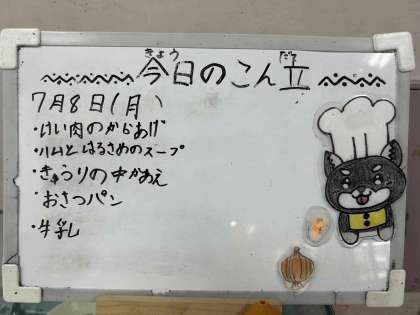 今日のこん立
きょう だて
7月8日(月)
・けい肉のからあげ
・ハムとはるさめのスープ
・きゅうりの中かあえ
・おさつパン
・牛乳